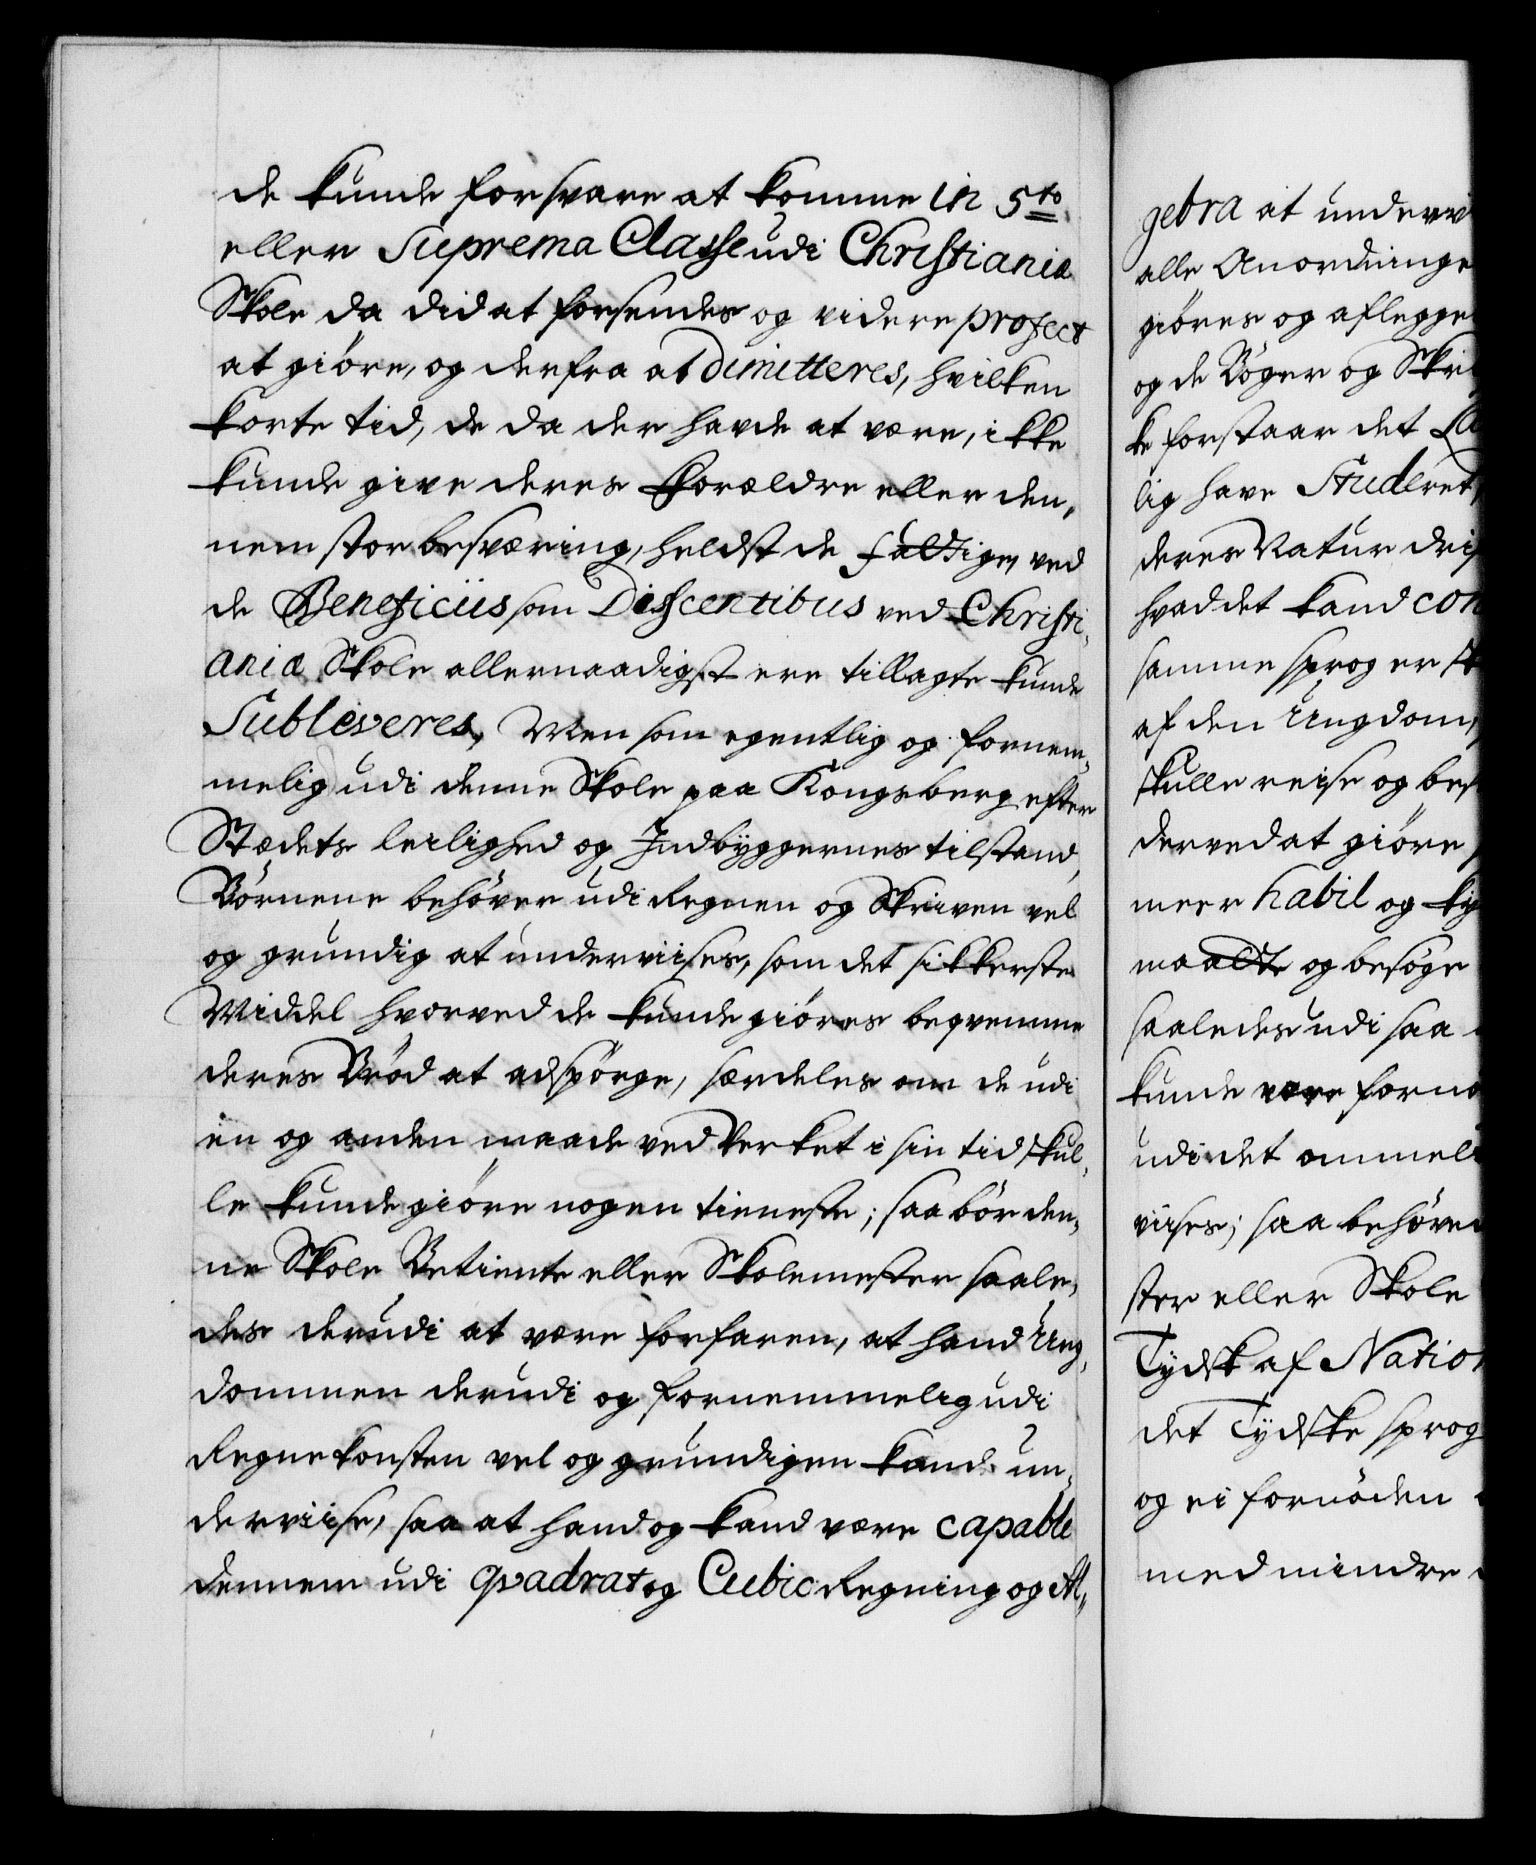 de kunde forsvare at komme in 5to
eller Suprema Classe udi Christianiæ
Skole da did at forsendes og videre profect
at giöre, og derfra at Dimitteres, hvilken
korte tid, de da der hafde at være, ikke
kunde give deres Forældre eller den,
nem stor besværing, heldst de fattige, ved
de Beneficiis som Discentibus ved Christi,
aniæ Skole allernaadigst ere tillagte kunde
Subleveres, Men som egentlig og fornem,
melig udi denne Skole paa Kongsberg efter
Stædets leilighed og Indbyggernes tilstand,
Börnene behöver udi Regnen og Skriven vel
og grundig at underviises, som det sikkerste
Middel hvorved de kunde giöres beqvemme
deres Bröd at adspörge, særdeles om de udi
en og anden maade ved Verket i sin tid skul,
le kunde giöre nogen tieneste; saa bör den,
ne Skole Betiente eller Skolemester saale,
des derudi at være forfaren, at hand Ung,
dommen derudi og fornemmelig udi
Regnekonsten vel og grundigen kand un,
derviise, saa at hand og kand være capable
dennem udi qvadrat og Cubic Regning og Al,
gebra at underv
alle Anordninge
giöres og aflegge
og de Böger og Skri
ke forstaar det La
lig have Studeret,
deres Natur dri
hvad det kand con
samme sprog er st
af den Ungdom,
skulle reise og bes
derved at giöre
meer habil og
maatte og besöge
saaledes udi saa
kunde være fornö
udi det ommel
viises; saa behöve
ster eller Skole
Tydsk af Nation
det Tydske sprog
og ei fornöden
med mindre